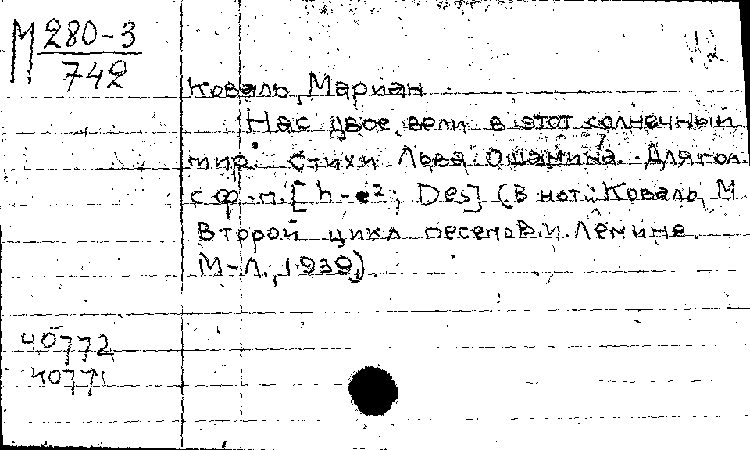 М 280-3
742
Коваль, Мариан
Нас двое вели в этот солнечный
мир. Стихи Льва Ошанина. Для гол.
с ф-п. [h-e²; Des] (В нот.: Коваль, М.
Второй цикл песен о В.И. Ленине.
М-Л., 1939)
40772
40771